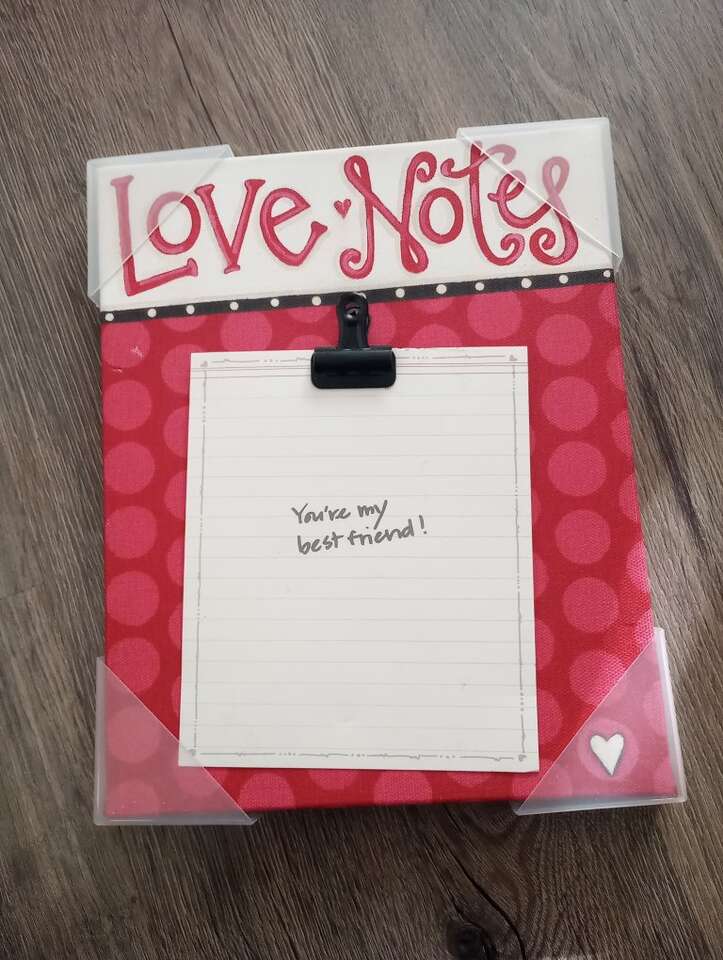 Love Notes
You're my
best friend!